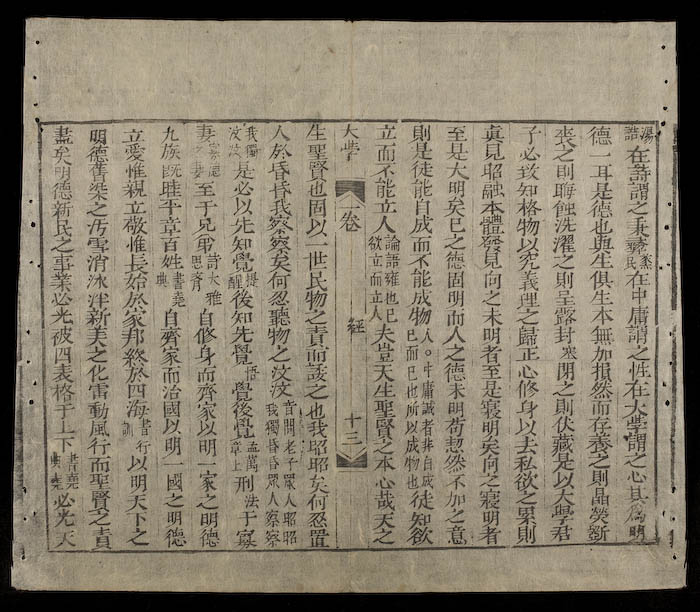 湯誥在詩謂之秉彝烝民在中庸謂之性在大學謂之心其爲明
德一耳是德也與生俱生本無加損然而存養之則晶熒斵
喪之則晦蝕洗濯之則呈露封塞閉之則伏藏是以大學君
子必致知格物以究義理之歸正心修身以去私欲之累則
眞見昭融本體發見向之未明者至是寢明矣向之寢明者
至是大明矣巳之德固明而人之德未明苟恝然不加之意
則是徒能自成而不能成物人。中庸誠者非自成已而已也所以成物也徒知欲
立而不能立人論語雍也巳欲立而立人夫豈天生聖賢之本心哉天之
大學 一卷 經 十三
生聖賢也固以一世民物之責而諉之也我昭昭矣何忍置
人於昏昏我察察矣何忍聽物之汶汶音問老子眾人昭昭我獨昏昏眾人察察
我獨汶汶是必以先知覺提醒後知先覺悟覺後覺孟萬章上刑法于寡
妻寡德之妻至于兄弟詩大雅思齊自修身而齊家以明一家之明德
九族旣睦平章百姓書堯典自齊家而治國以明一國之明德
立愛惟親立敬惟長始於家邦終於四海書訓行以明天下之
明德舊染之汚雪消冰泮新美之化雷動風行而聖賢之責
盡矣明德新民之事業必光被四表格于上下書堯典必光天